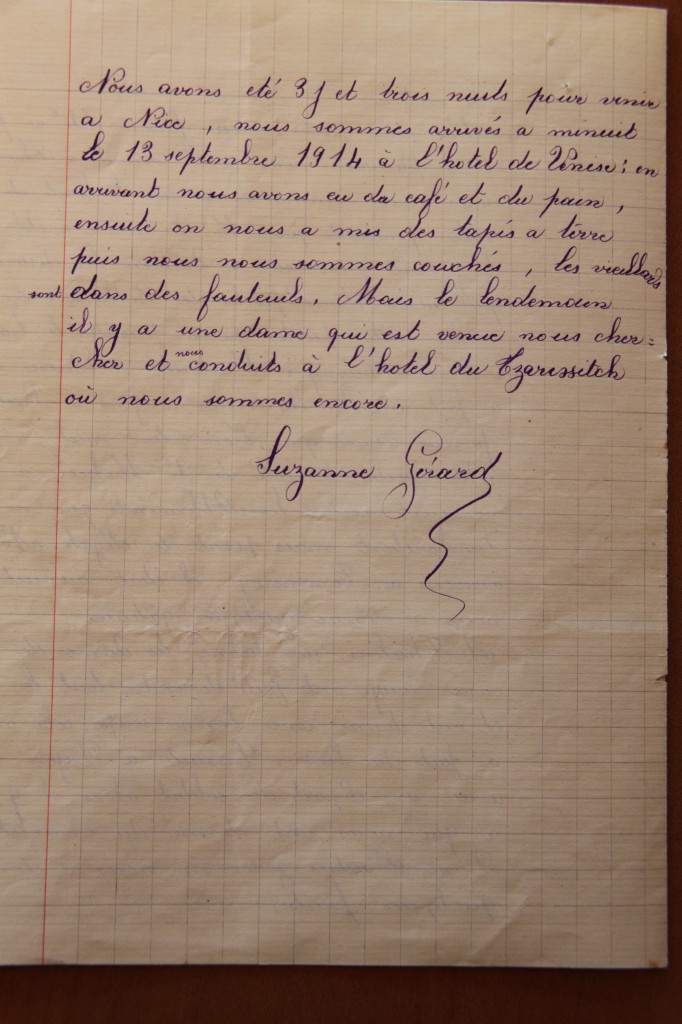 Nous avons eté 3 j et trois nuits pour venir
a Nice, nous sommes arrivés a minuit
le 13 septembre 1914 à l'hotel de Venise : en
arrivant nous avons eu du café et du pain,
ensuite on nous a mis des tapis a terre
puis nous nous sommes couchés, les vieillards
sont dans des fauteuils. Mais le lendemain
il y a une dame qui est venue nous cher=
cher et nous conduits à l'hotel du Tzarewitch
où nous sommes encore.
Suzanne Gérard